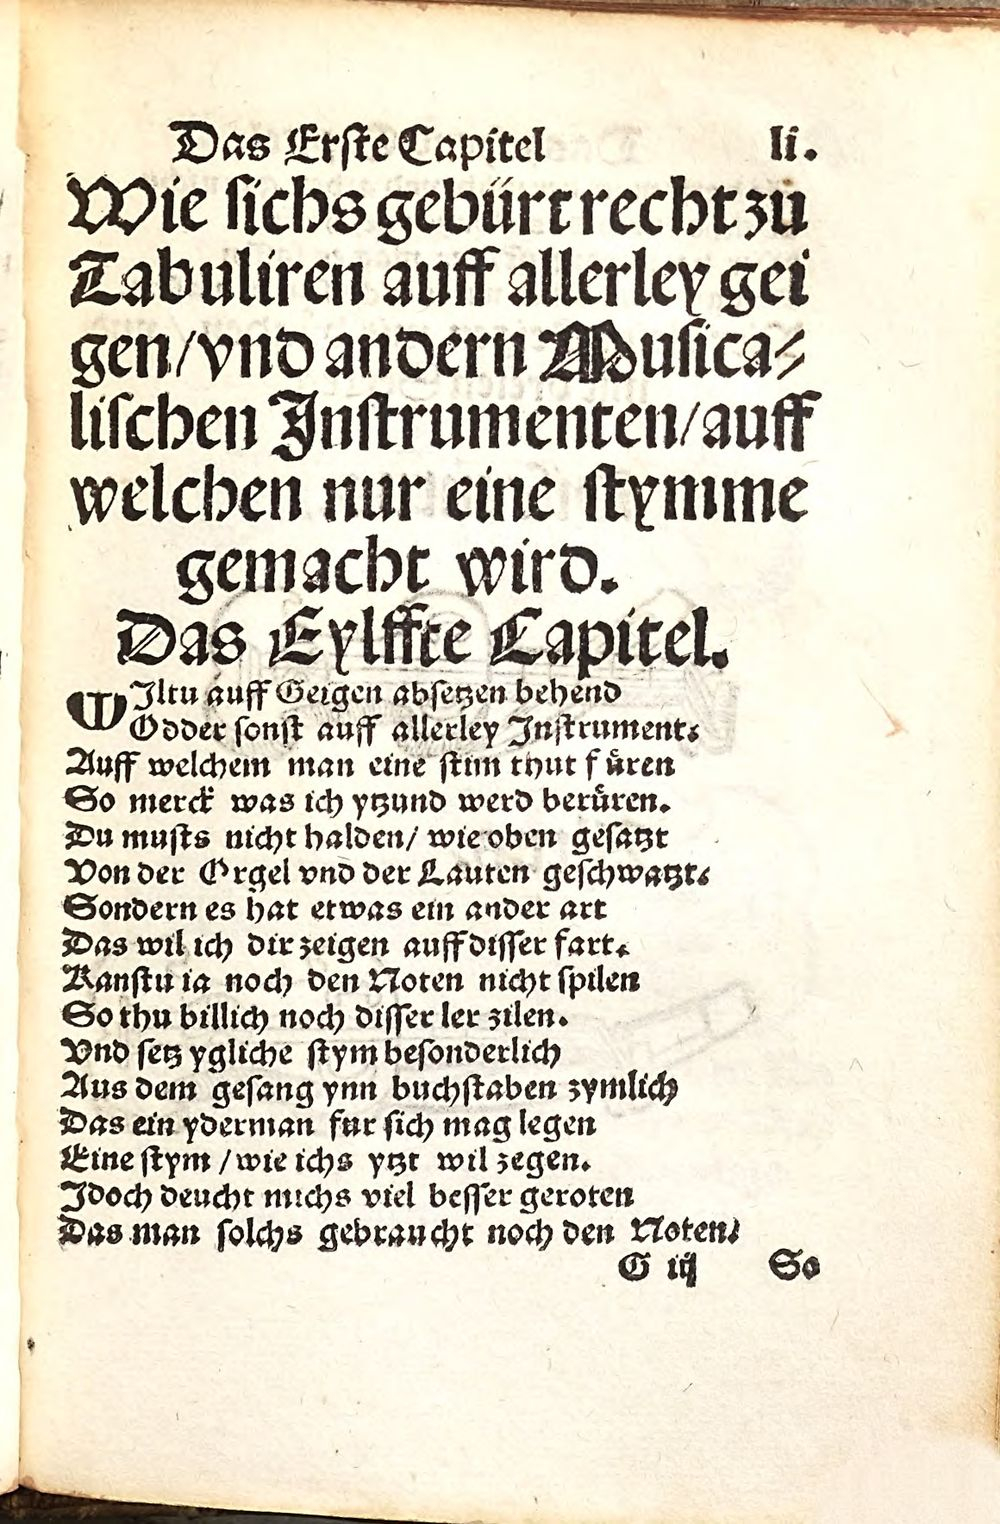 Das Erste Capitel li.
Wie sichs gebürt recht zu
Tabuliren auff allerley gei
gen/vnd andern Musica⸗
lischen Instrumenten/auff
welchen nur eine stymme
gemacht wird.
Das Eylffte Capitel.
WIltu auff Geigen absetzen behend
Odder sonst auff allerley Instrument.
Auff welchem man eine stim thut fuͤren
So merck was ich ytzund werd beruͤren.
Du musts nicht halden/ wie oben gesatzt
Von der Orgel vnd der Lauten geschwatzt.
Sondern es hat etwas ein ander art
Das wil ich dir zeigen auff disser fart.
Kanstu ia noch den Noten nicht spilen
So thu billich noch disser ler zilen.
Vnd setz ygliche stym besonderlich
Aus dem gesang ynn buchstaben zymlich
Das ein yderman fur sich mag legen
Eine stym /wie ichs ytzt wil zegen.
Idoch deucht michs viel besser geroten
Das man solchs gebraucht noch den Noten.
G iij So